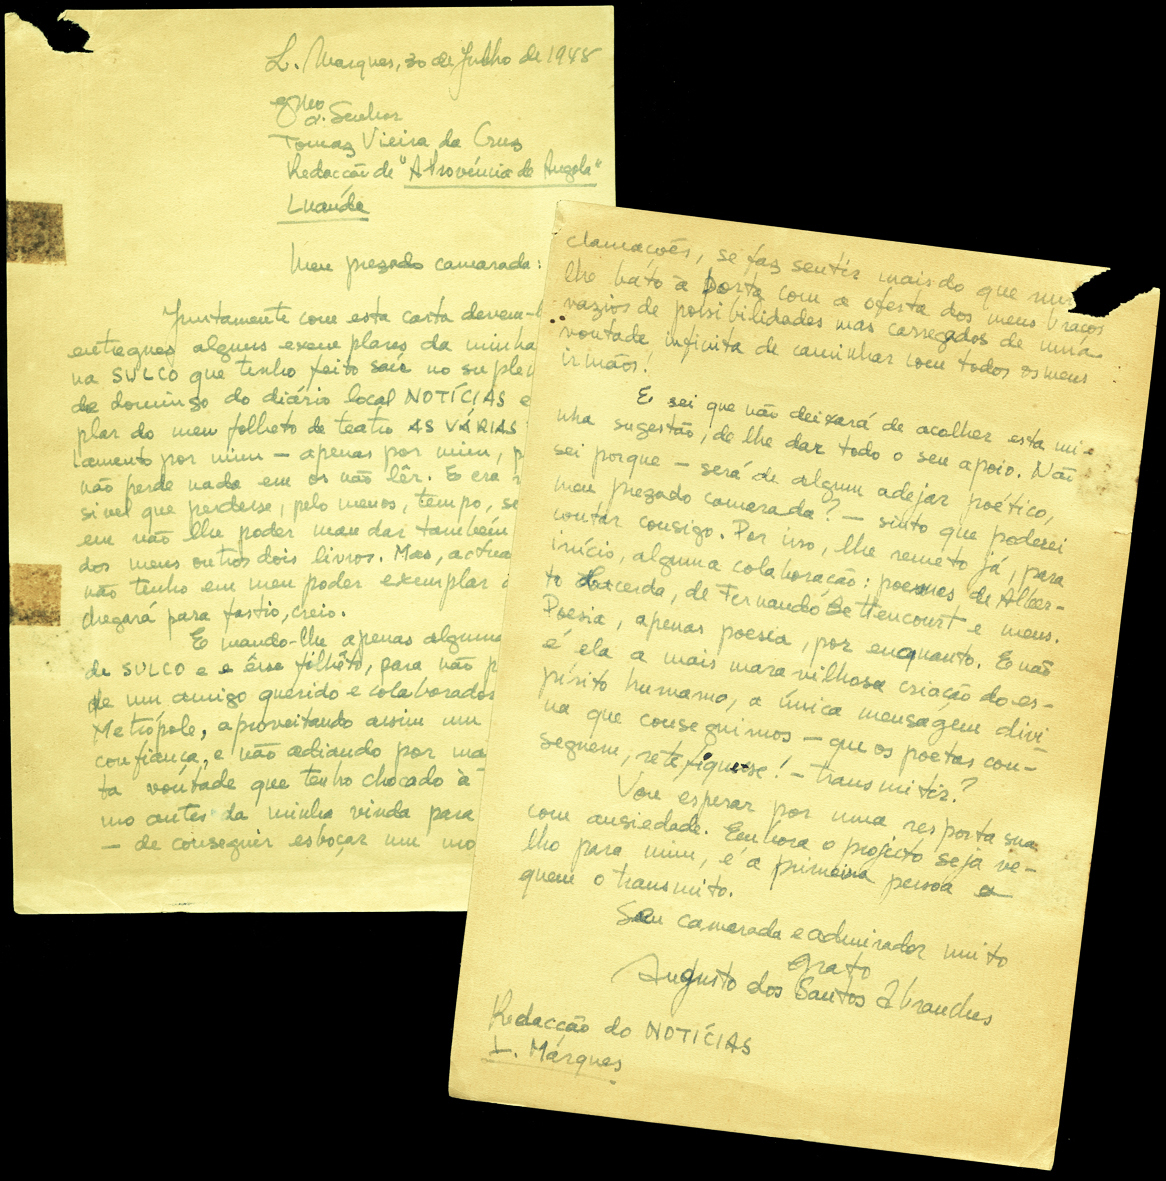 L. Marques, 30 de Julho de 1948
Exmo
Senhor
Tomaz Vieira da Cruz
Redacção de "A Província de Angola"
Luanda
Meu prezado camarada:
Juntamente com esta carta devem-l
entregues alguns exemplares da minha
na SULCO que tenho feito sair no suplem
de domingo do diário local NOTÍCIAS e
plar do meu folheto de teatro AS VÁRIAS
lamento por mim — apenas por mim, p
não perde nada em os não lêr. E era
sivel que perdesse, pelo menos, tempo, se
em não lhe poder mandar também
dos meus outros dois livros. Mas, actua
não tenho em meu poder exemplar
chegará para fastio, creio.
E mando-lhe apenas alguns
de SULCO e e êsse folhêto, para não p
de um amigo querido e colaborador
Metrópole, aproveitando assim um
confiança, e não adiando por ma
ta vontade que tenho chocado à
mo antes da minha vinda para
— de conseguir esboçar um mo
clamações, se faz sentir mais do que nun
lhe bato à porta com a oferta dos meus braços
vazios de possibilidades mas carregados de uma
vontade infinita de caminhar com todos os meus
irmãos!
E sei que não deixará de acolher esta mi-
nha sugestão, de lhe dar todo o seu apoio. Não
sei porque — será de algum adejar poético,
meu prezado camarada? — sinto que poderei
contar consigo. Por isso, lhe remeto já, para
início, alguma colaboração: poemas de Alber-
to Lacerda, de Fernando Bettencourt e meus.
Poesia, apenas poesia, por enquanto. E não
é ela a mais maravilhosa criação do es-
pírito humano, a única mensagem divi-
na que conseguimos — que os poetas con-
seguem, retifique-se! — transmitir?
Vou esperar por uma resposta sua
com ansiedade. Embora o projecto seja ve-
lho para mim, é a primeira pessoa a
quem o transmito.
Seu camarada e admirador muito
grato
Augusto dos Santos Abranches
Redacção do NOTÍCIAS
L. Márques